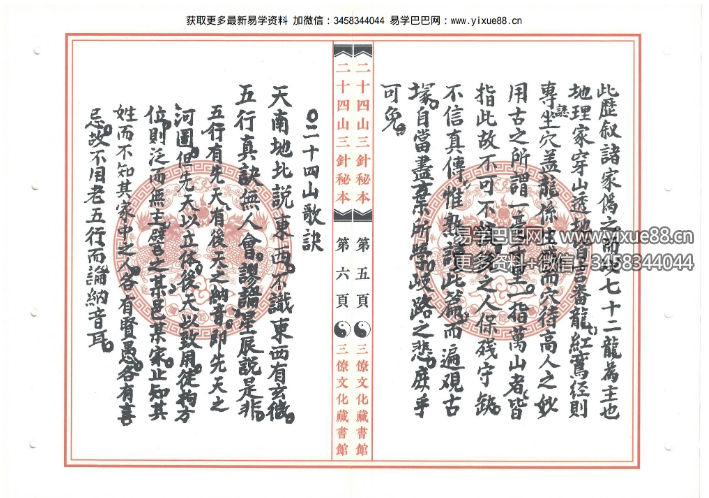 获取更多最新易学资料 加微信：3458344044 易学巴巴网：www.yixue88.cn
此歷叙諸家偽之所先七十二龍為主也
地理家穿山透地皆言番龍紅鸞經則
專認坐穴盖龍係生成而穴待高人之妙
用古之所謂一指萬山者皆
指此故不可不之人保殘守缺
不信真傳惟熟讀此篇而遍观古
塚自當盡棄所岐路之悲庶乎
可免
二十四山三針秘本 第五頁 三僚文化藏書館
二十四山三針秘本 第六頁 三僚文化藏書館
〇二十四山歌訣
天南地北説東西不識東西有玄微
五行真訣無人會謬論星辰説是非
五行有先天有後天之納音即先天之
河圖但先天以立体後天以致用徒拘方
位則泛而無主譬之某邑某家止知其
姓而不知其家中之人各有賢愚各有喜
忌故不用老五行而論納音耳
易学巴巴网：www.yixue88.cn
更多资料+微信：3458344044